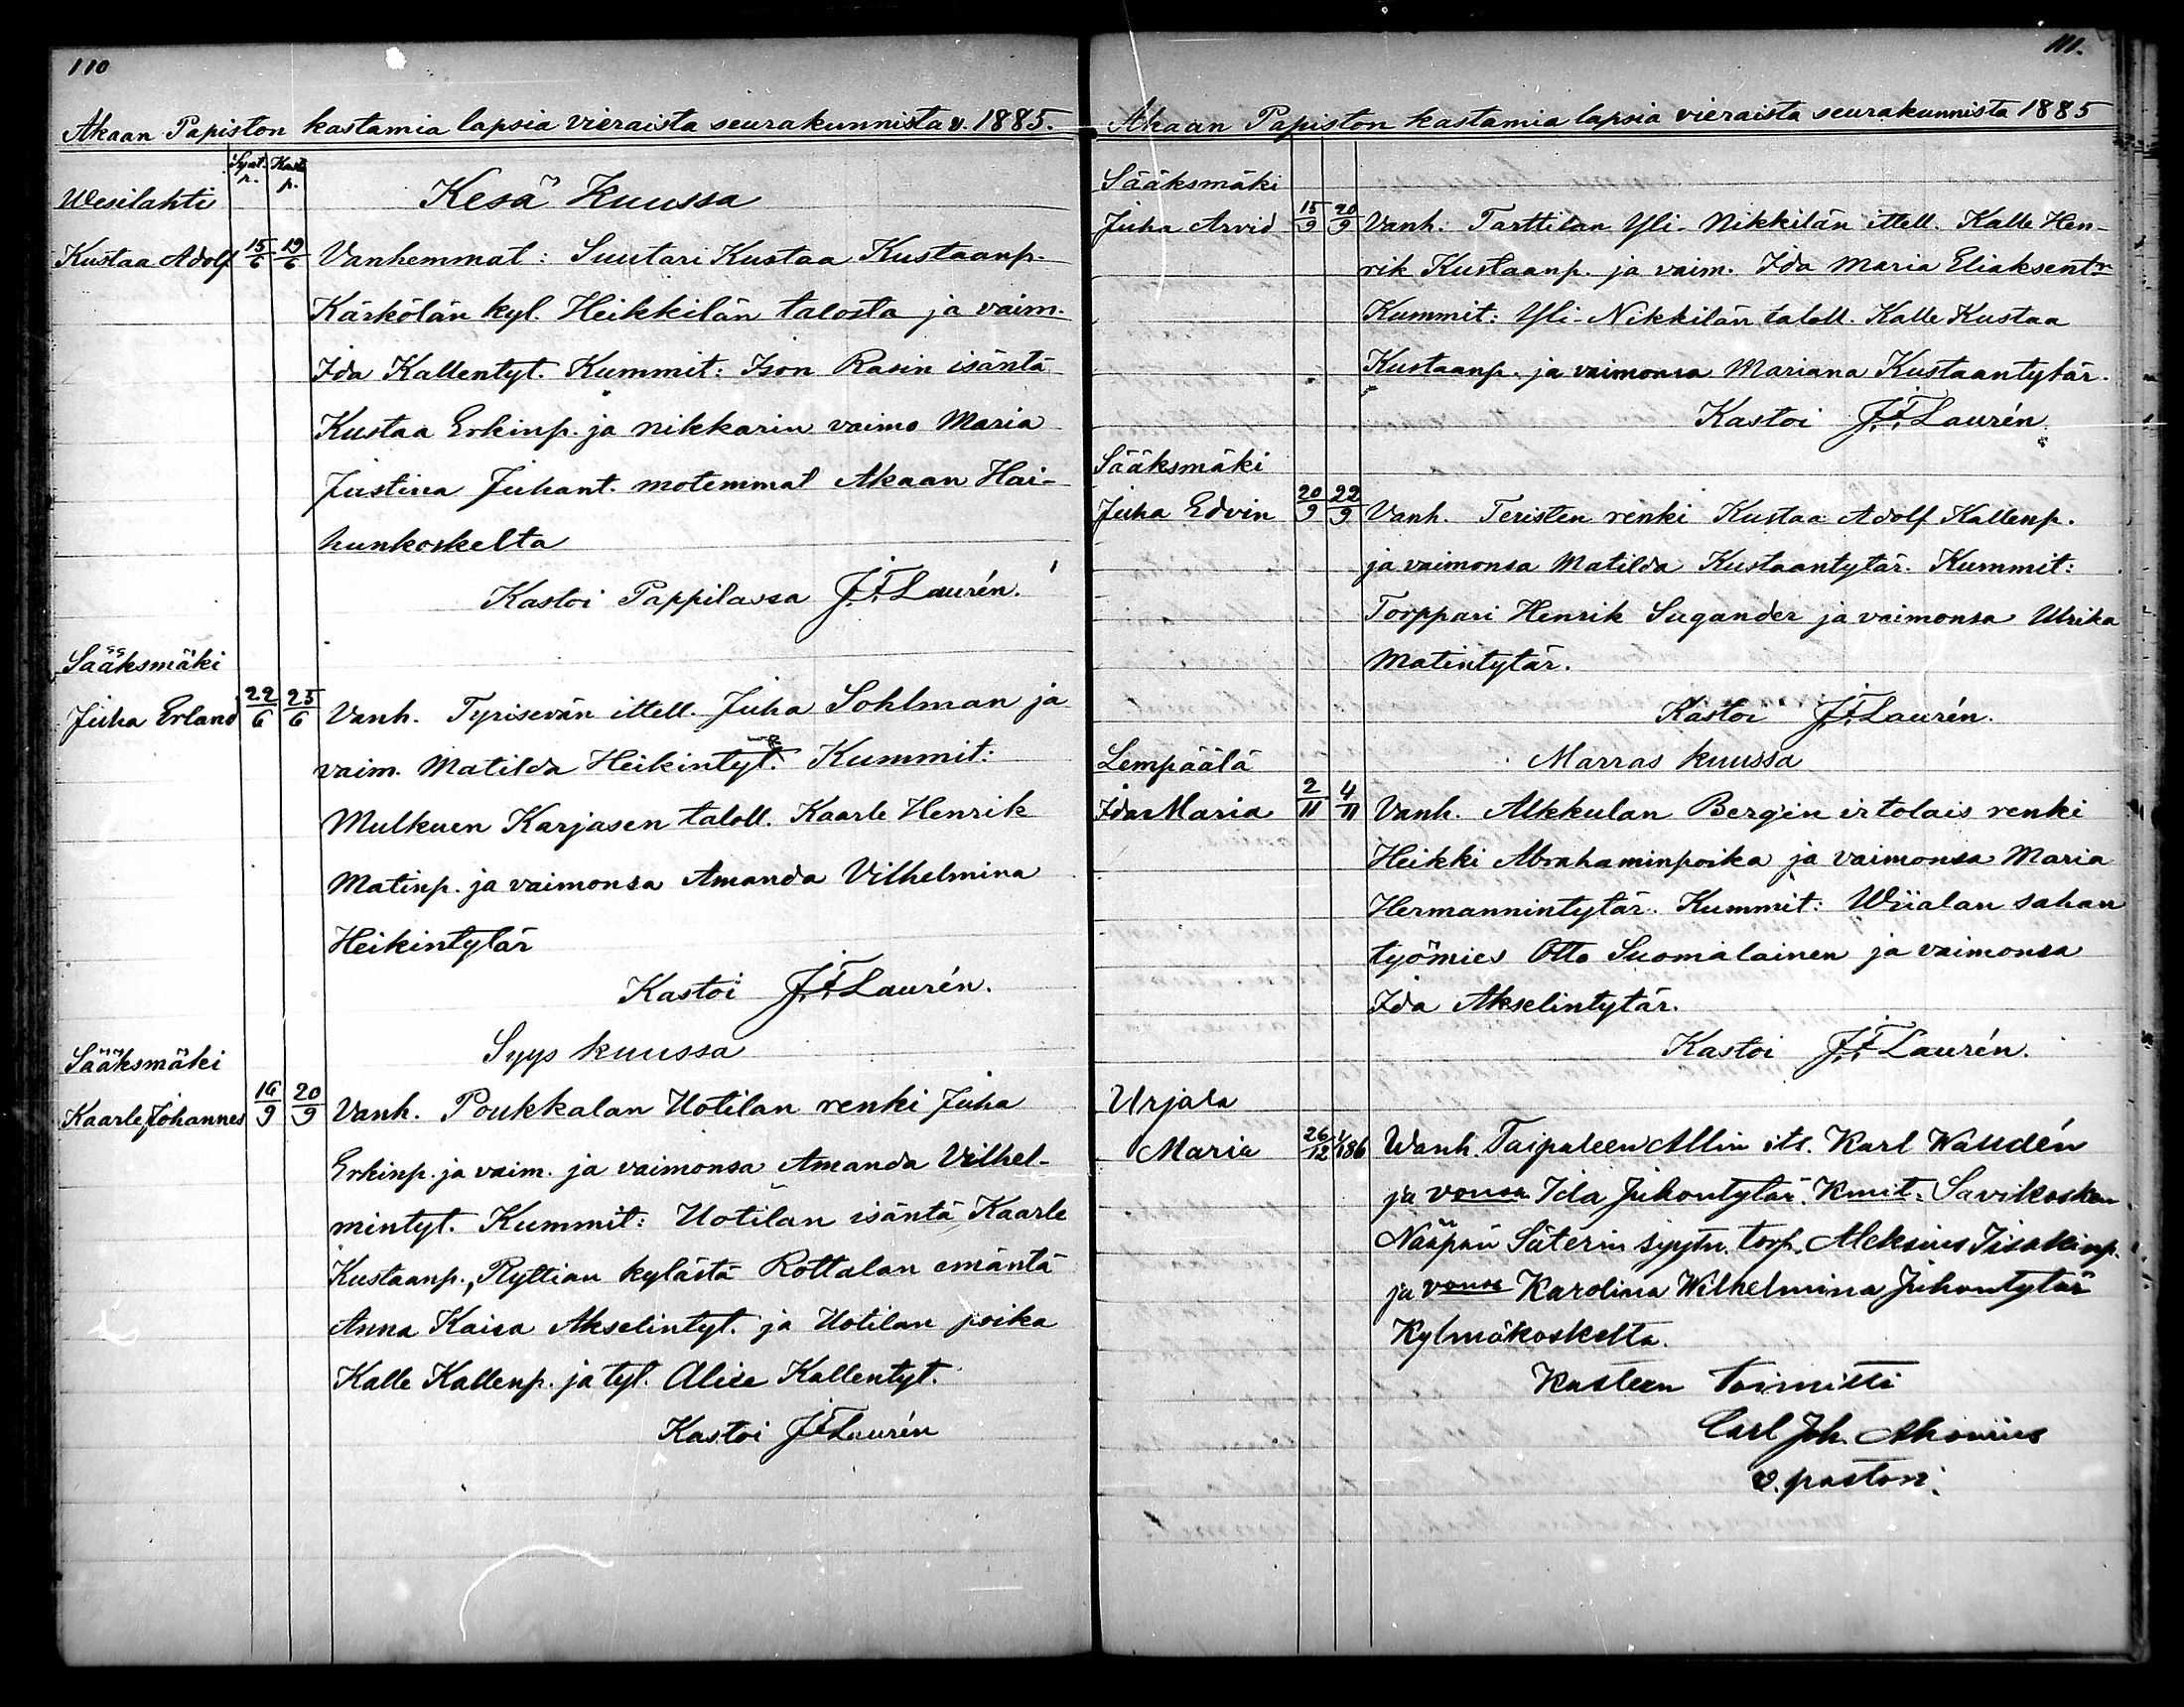 110
Akaan Papiston kastamia lapsia vieraista seurakunnista v. 1885.
Synt. p. Kast. p.
Wesilahti
Kesä Kuussa
Kustaa Adolf 15/6 19/6 Vanhemmat: Suutari Kustaa Kustaanp.
Kärkölän kyl. Heikkilän talosta ja vaim.
Ida Kallentyt. Kummit: Ison Rasin isäntä
Kustaa Erkinp. ja nikkarin vaimo Maria
Justina Juhant. motemmat Akaan Hai-
hunkoskelta
Kastoi Pappilassa J.F. Laurén.
Sääksmäki
Juha Erland 22/6 25/6 Vanh. Tyrisevän ittell. Juha Sohlman ja
vaim. Matilda Heikintyt. Kummit:
Mulkuen Karjasen taloll. Kaarle Henrik
Matinp. ja vaimonsa Amanda Vilhelmina
Heikintytär
Kastoi J.F. Laurén.
Syys kuussa
Sääksmäki
Kaarle Johannes 16/9 20/9 Vanh. Poukkalan Uotilan renki Juha
Erkinp. ja vaim. ja vaimonsa Amanda Vilhel-
mintyt. Kummit: Uotilan isäntä Kaarle
Kustaanp., Ryttian kylästä Rottalan emäntä
Anna Kaisa Akselintyt. ja Uotilan poika
Kalle Kallenp. ja tyt. Alice Kallentyt.
Kastoi J.F. Laurén
111.
Akaan Papiston kastamia lapsia vieraista seurakunnista 1885
Sääksmäki
Juha Arvid 15/9 20/9 Vanh: Tarttilan Yli-Nikkilän ittell. Kalle Hen-
rik Kustaanp. ja vaim. Ida Maria Eliaksent:r
Kummit: Yli-Nikkilän taloll. Kalle Kustaa
Kustaanp. ja vaimonsa Mariana Kustaantytär.
Kastoi J.F. Laurén
Sääksmäki
Juha Edvin 20/9 22/9 Vanh. Teristen renki Kustaa Adolf Kallenp.
ja vaimonsa Matilda Kustaantytär. Kummit:
Torppari Henrik Sugander ja vaimonsa Ulrika
Matintytär.
Kastoi J.F. Laurén.
Marras kuussa
Lempäälä
Ida Maria 2/11 4/11 Vanh. Alkkulan Bergin irtolais renki
Heikki Abrahaminpoika ja vaimonsa Maria
Hermannintytär. Kummit: Wiialan sahan
työmies Otto Suomalainen ja vaimonsa
Ida Akselintytär.
Kastoi J.F. Laurén.
Urjala
Maria 26/12 1/1 86 Wanh. Taipaleen Allin itl. Karl Waudén
ja vonsa Ida Juhontytär. Kmit. Savikosken
Nääpän Säterin syytn. torp. Aleksius Iisakinp.
ja vonsa Karolina Wilhelmina Juhontytär
Kylmäkoskelta.
Kasteen toimitti
Carl Joh. Ahonius
v. pastori.